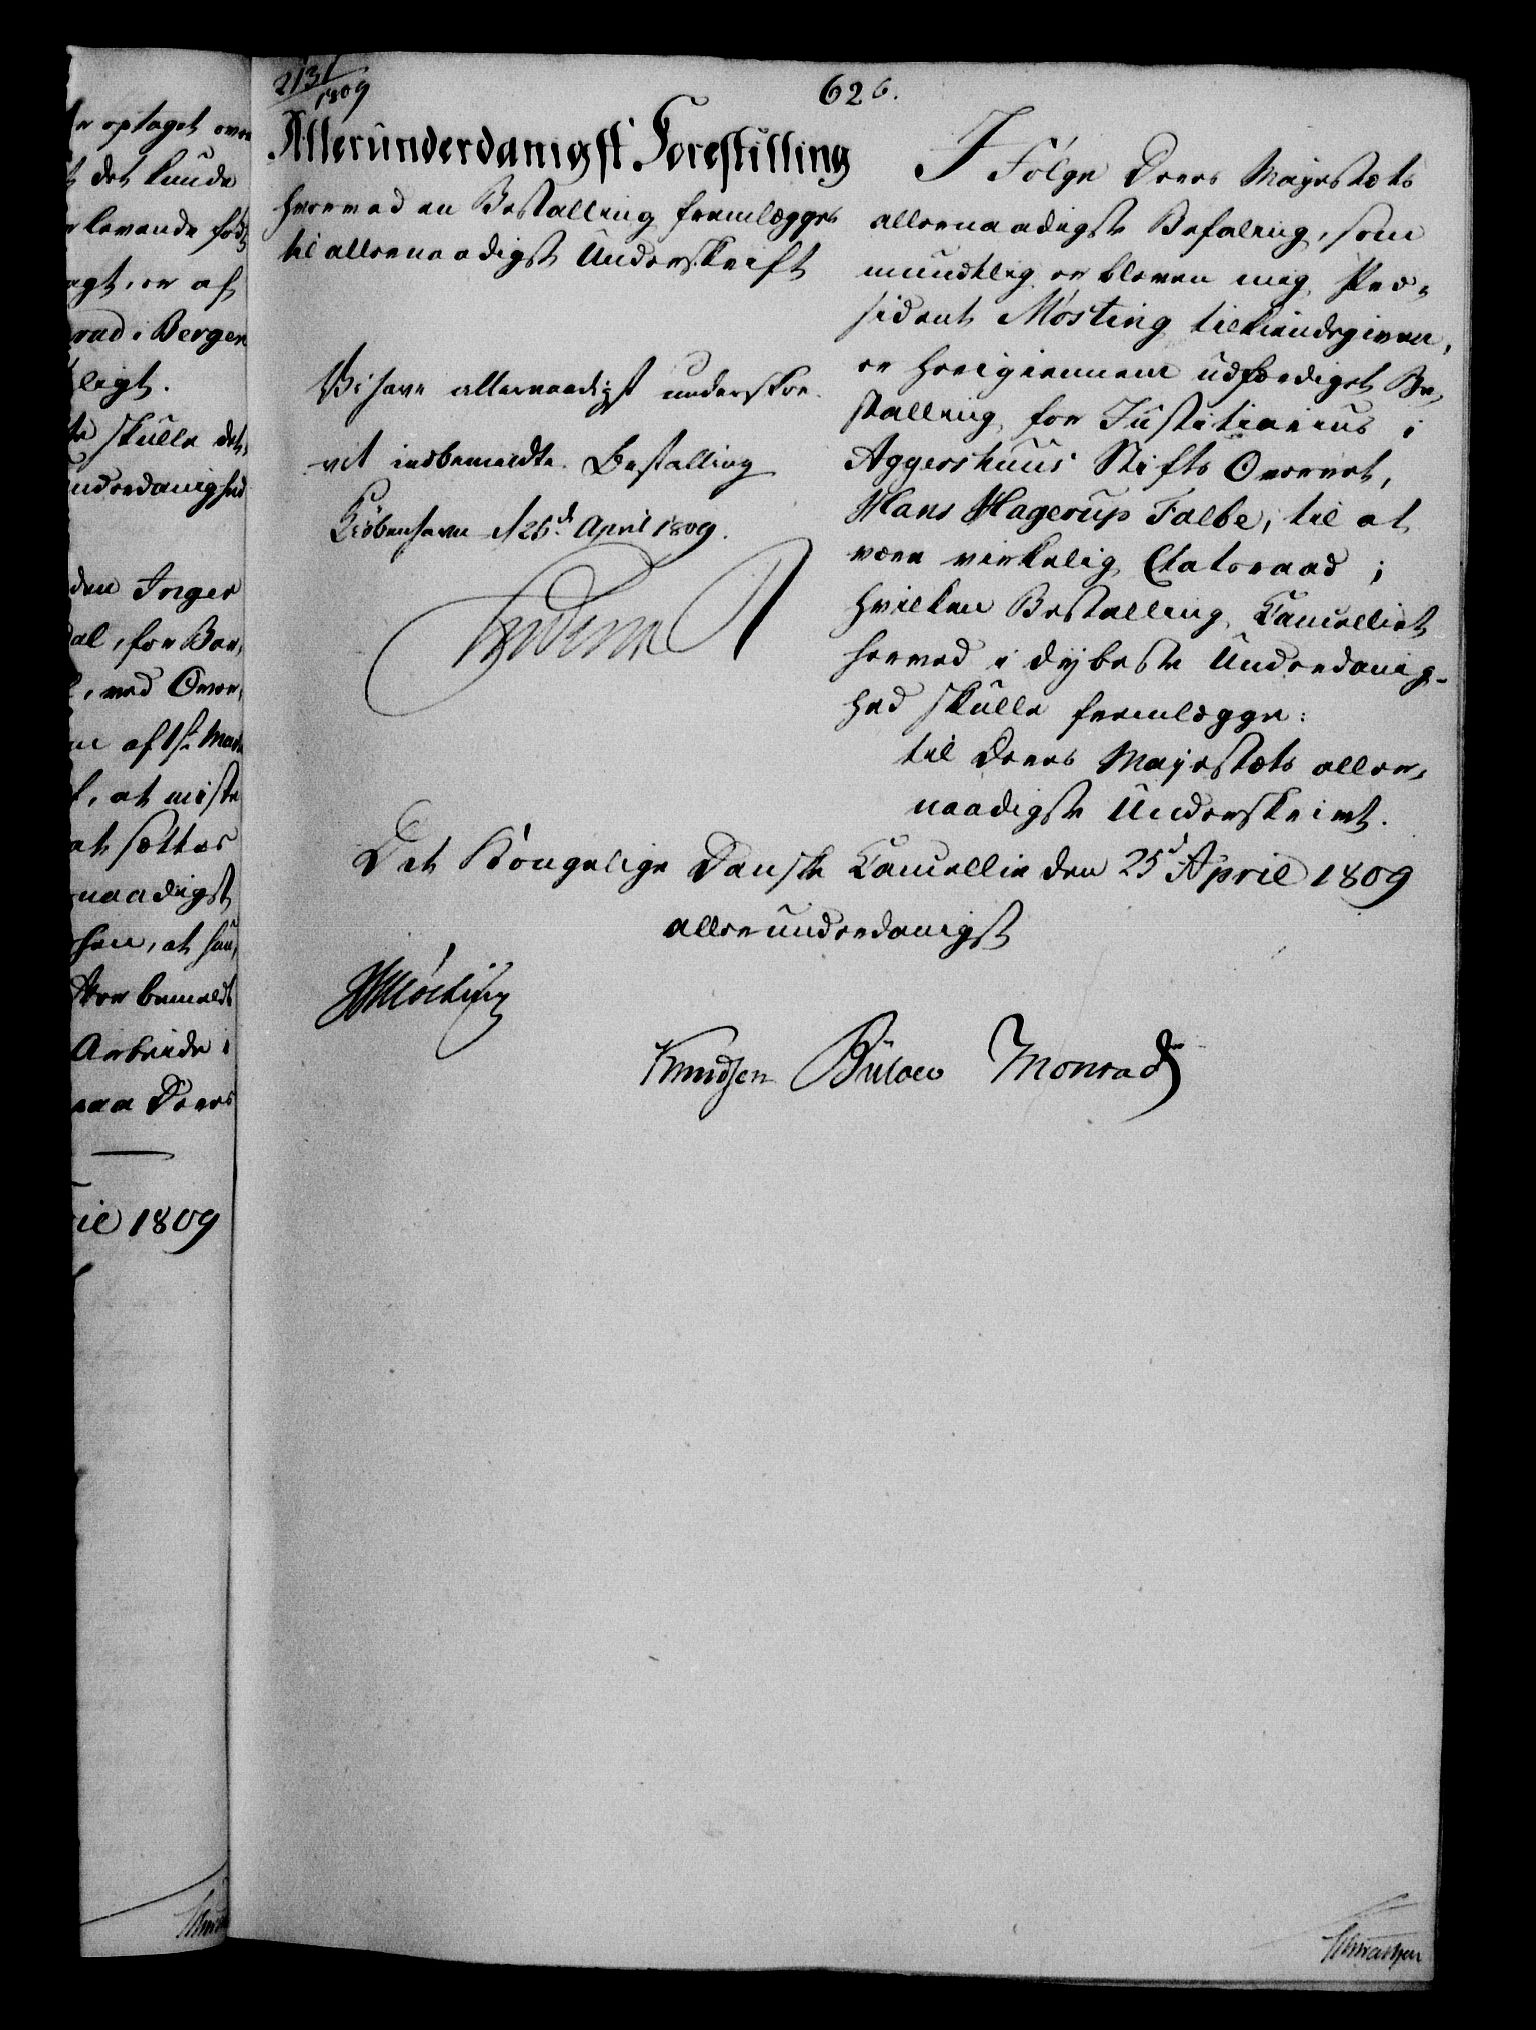 r optaget over
det kunde
levende født
agt, er af
raad i Bergen
ligt.
skulle det,
underdanighed
den Inger
dal, for Bar,
, ved Over,
af 1ste Marts
, at miste
at sættes
naadigst
hen, at han,
bemeldte
Arbeide i
paa Deres
ril 1809
2131
1809
626.
Allerunderdanigst Forestilling
hvorved en Bestalling fremlægges
til allernaadigst Underskrift
Vi have allernaadigst underskre-
vet indbemeldte Bestalling
Kiøbenhavn d 25d April 1809.
Frederik R
I Følge Deres Majestæts
allernaadigste Befaling, som
mundtlig er bleven mig Præ-
sident Møsting tilkiendegiven,
er herigiennem udfærdiget Be-
stalling for Justitiarius i
Aggershuus Stifts Overret,
Hans Hagerup Falbe, til at
være virkelig Etatsraad;
hvilken Bestalling Cancelliet
herved i dybeste Underdanig-
hed skulle fremlægge:
til Deres Majestæts aller-
naadigste Underskrivt.
Det Kongelige Danske Cancellie den 25d April 1809
allerunderdanigst
Møsting
Knudsen Bülow Monrad